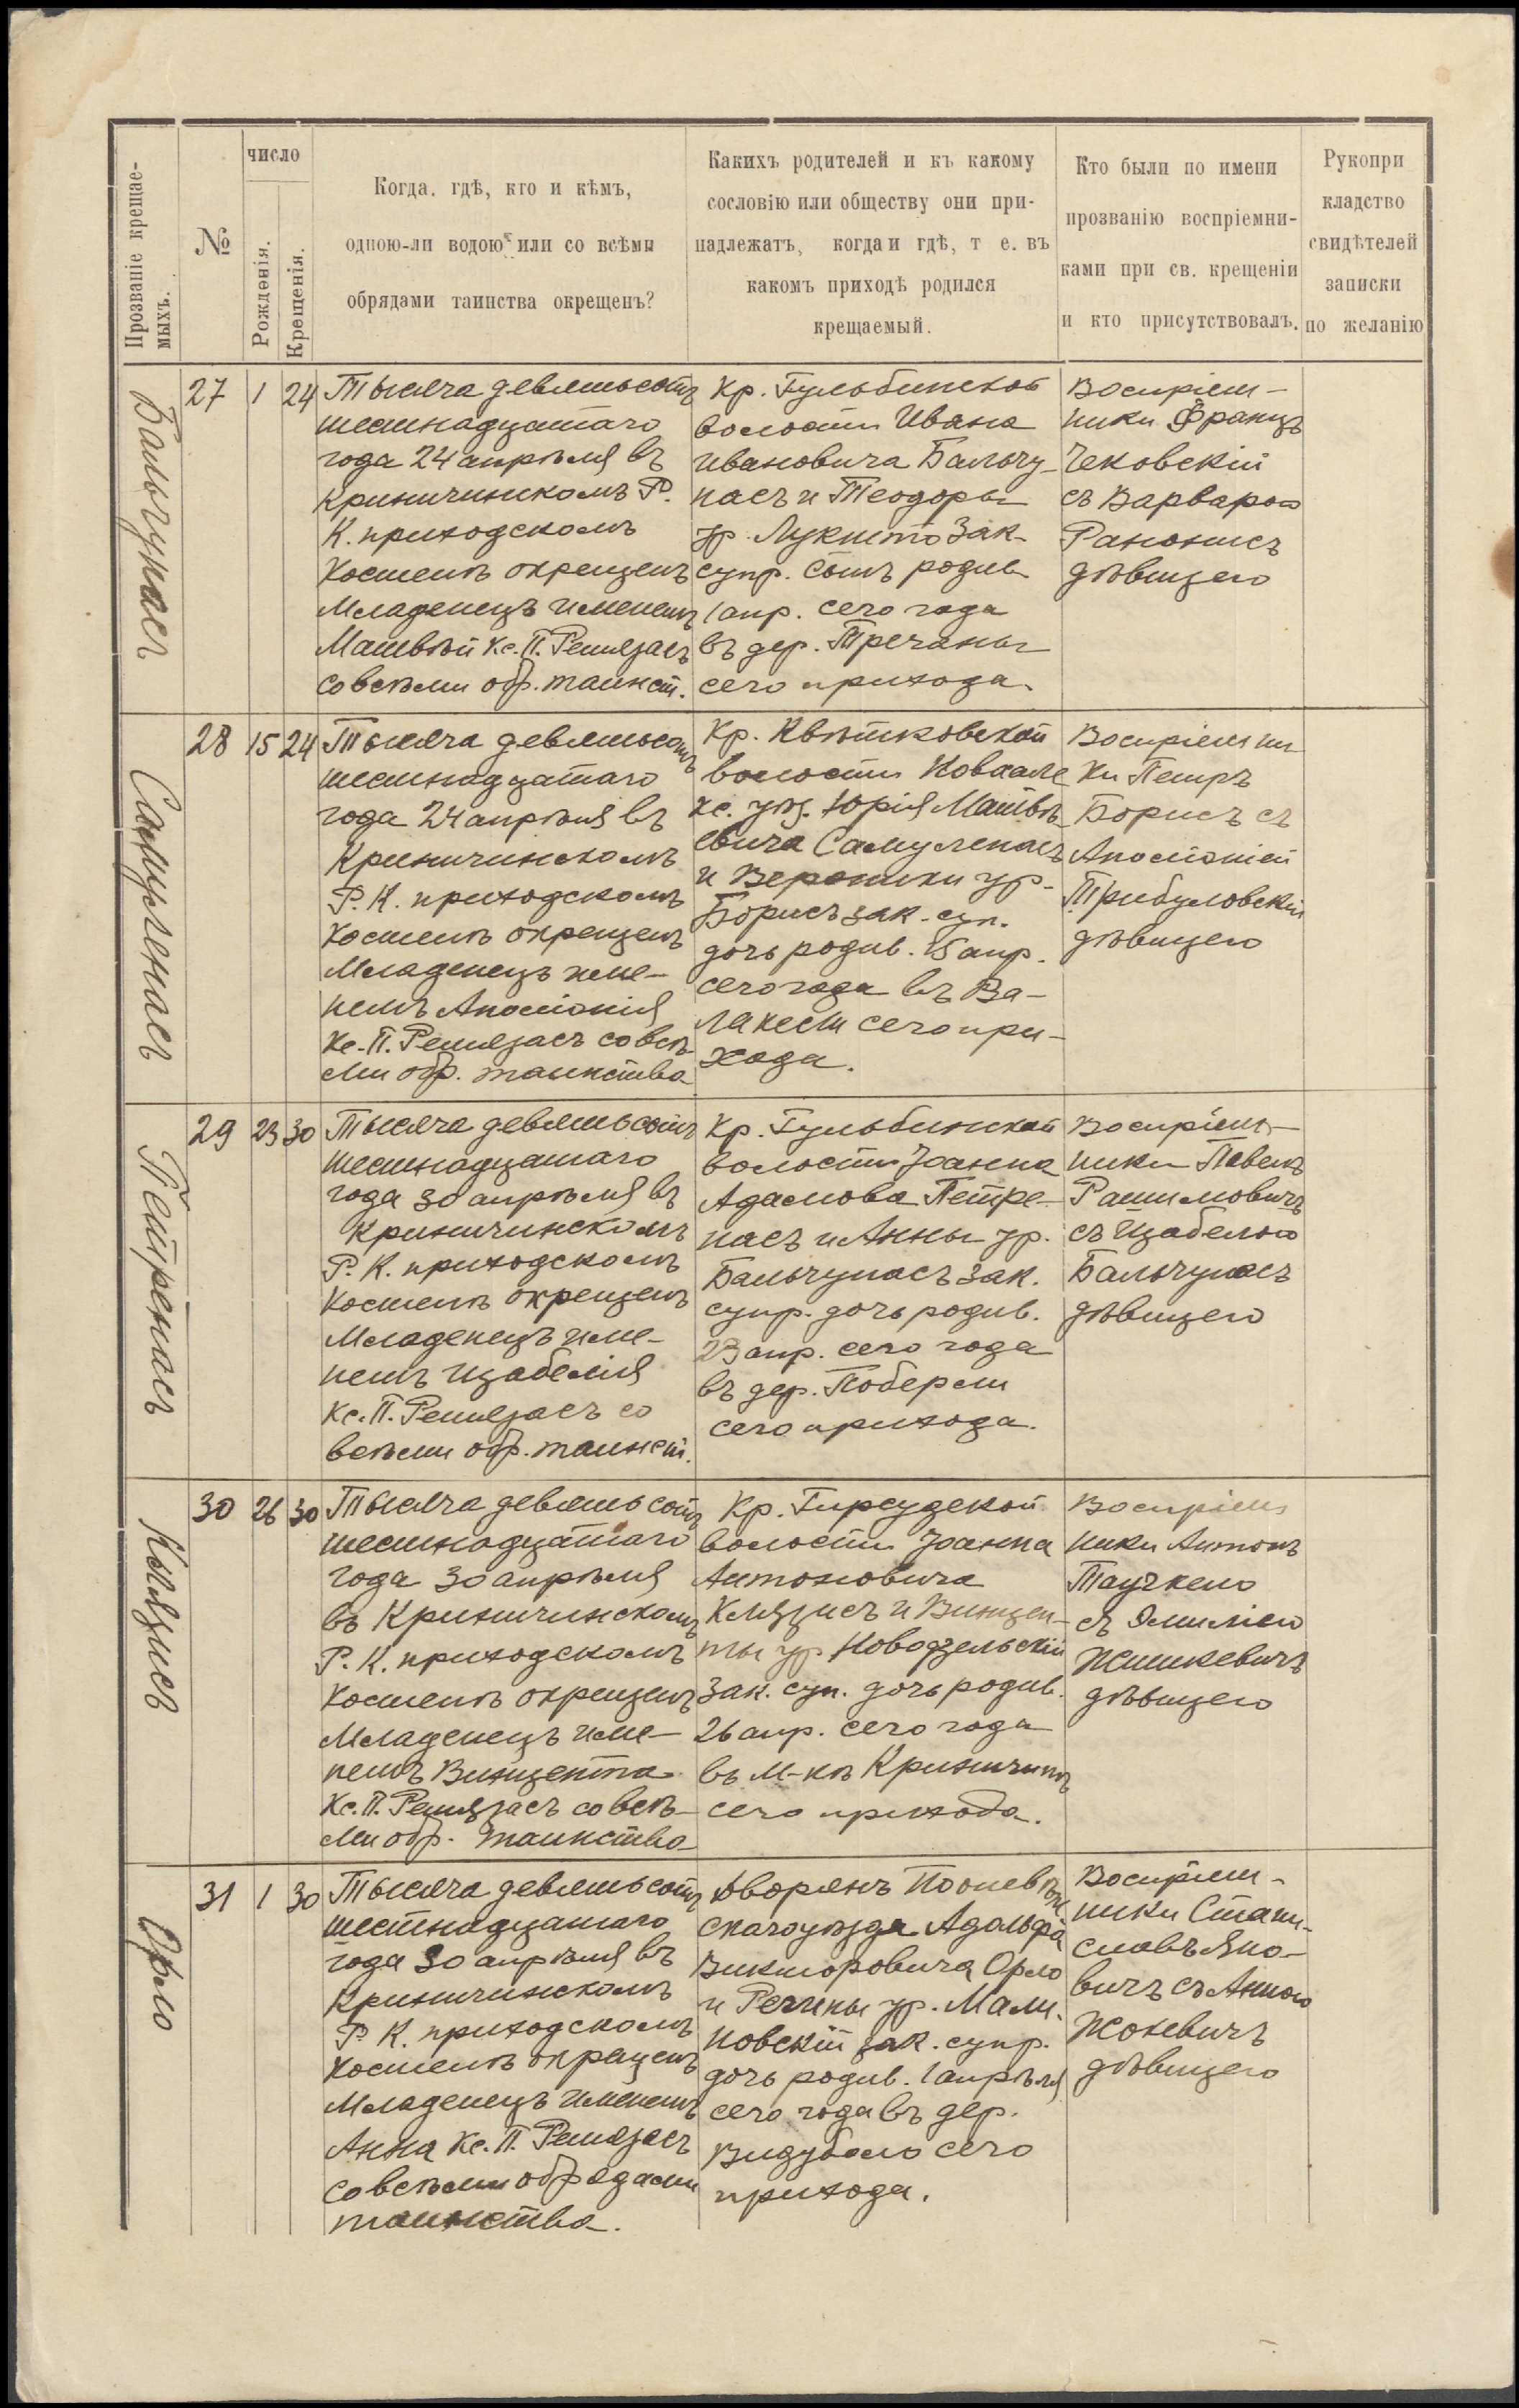 Прозваніе крещае-
мыхъ.
№
число
Рожденія.
Крещенія.
Когда. гдѣ, кго и кѣмъ,
одною-ли водою или со всѣми
обрядами таинства окрещенъ?
Какихъ родителей и къ какому
сословію или обществу они при-
надлежатъ, когда и гдѣ, т е. въ
какомъ приходѣ родился
крещаемый.
Кто были по имени
прозванію воспріемни-
ками при св. крещеніи
и кто присутствовалъ.
Рукопри
кладство
свидѣтелей
записки
по желанію
Бальчунасъ
27
1
24
Тысяча девятьсотъ
шестнадцатаго
года 24 апрѣля въ
Криничинскомъ Р.
К. приходскомъ
костелѣ окрещенъ
младенецъ именемъ
Матвѣй Кс. П. Ремезасъ
со всѣми обр. таинст.
Кр. Гульбинской
волости Ивана
Ивановича Бальчу-
насъ и Теодоры
ур. Лукшто зак-
супр. сынъ родив.
1 апр. сего года
въ дер. Тречаны
сего прихода.
Воспріем-
ники Францъ
Чековскій
съ Варварою
Рамонисъ
дѣвицею
Самуленасъ
28
15
24
Тысяча девятьсотъ
шестнадцатаго
года 24 апрѣля въ
Криничинскомъ
Р. К. приходскомъ
костелѣ окрещенъ
младенецъ име-
немъ Аполіонія
Кс. П. Ремезасъ со всѣ-
ми обр. таинства
Кр. Квѣтковской
волости Новоале
кс. уѣз. Юрія Матвѣ-
евича Самуленасъ
и Вероники ур-
Борисъ зак. суп.
дочь родив. 15 апр.
сего года въ Ва-
лакели сего при-
хода.
Воспріемни
ки Петръ
Борисъ съ
Аполіоніей
Трибуловскій
дѣвицею
Петренасъ
29
23
30
Тысяча девятьсотъ
шестнадцатаго
года 30 апрѣля въ
Криничинскомъ
Р. К. приходскомъ
костелѣ окрещенъ
младенецъ име-
немъ Изабелія
Кс. П. Ремезасъ со
всѣми обр. таинст.
Кр. Гульбинской
волости Іоанна
Адамова Петре-
насъ и Анны ур.
Бальчунасъ зак.
супр. дочь родив.
23 апр. сего года
въ дер. Поберсли
сего прихода.
Воспріем-
ники Павелъ
Рашимовичъ
съ Изабелою
Бальчунасъ
дѣвицею
Клязисъ
30
26
30
Тысяча девятьсотъ
шестнадцатаго
года 30 апрѣля
въ Криничинскомъ
Р. К. приходскомъ
костелѣ окрещенъ
младенецъ име-
немъ Винцента
Кс. П. Ремезасъ со всѣ-
ми обр. таинства
Кр. Гирсудской
волости Іоанна
Антоновича
Клязисъ и Винцен-
ты ур Новодзельскій
зак. суп. дочь родив.
26 апр. сего года
въ м-кѣ Криничинъ
сего прихода.
Воспріем
ники Антонъ
Таучкело
съ Эмиліею
Жилкевичъ
дѣвицею
Орло
31
1
30
Тысяча девятьсотъ
шестнадцатаго
года 30 апрѣля въ
Криничинскомъ
Р. К. приходскомъ
костелѣ окрещенъ
младенецъ именемъ
Анна Кс. П. Ремезасъ
со всѣми обрядами
таинства.
Дворянъ Поневѣж
скаго уѣзда Адольфа
Викторовича Орло
и Регины ур. Мали-
новскій зак. супр.
дочь родив. 1 апрѣля
сего года въ дер.
Видуболо сего
прихода.
Воспріем-
ники Стани-
славъ Яно-
вичъ съ Анною
Жокевичъ
дѣвицею